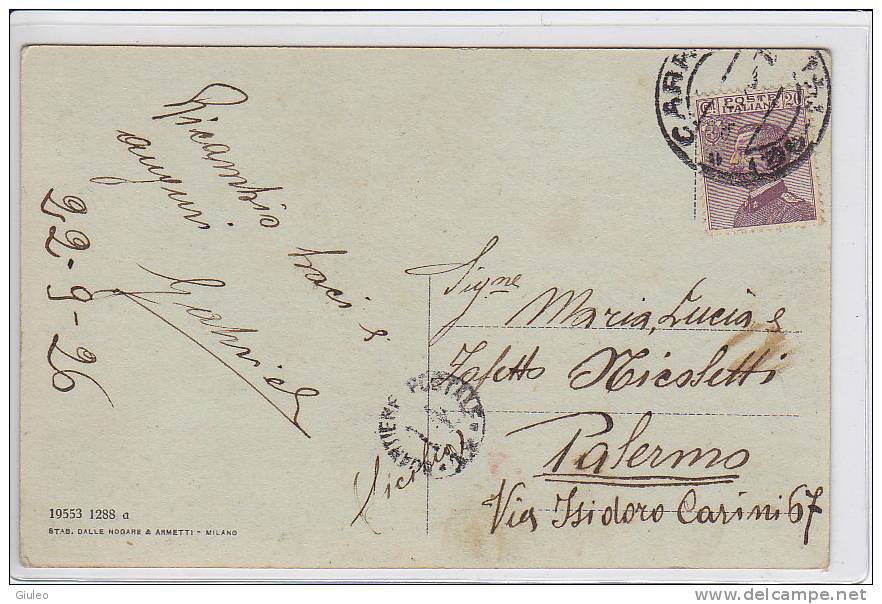 Ricambio baci e
auguri
Gabriel
22-9-26
19553 1288 a
STAB. DALLE NOGARE & ARMETTI - MILANO
CARR
Ct POSTE 20
ITALIANE
Signe
Maria, Lucia e
Nicoletti
Palermo
(Sicilia)
Via Isidoro Carini 67
PORTALETTERE POSTALE
Giuleo
delcampe.net